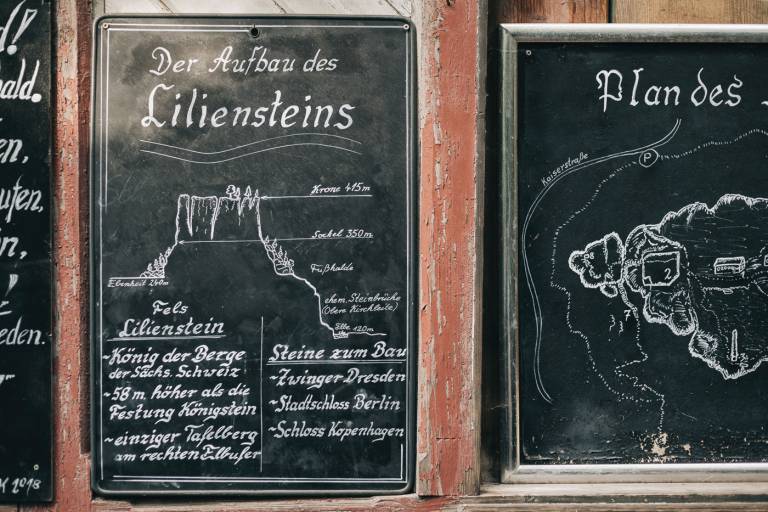 d!
ald.
en,
ufen,
n,
!
eden.
r
K 2018
Der Aufbau des
Liliensteins
Krone 415 m
Sockel 350 m
Fußhalde
Ebenheit 240m
ehem. Steinbrüche
(Obere Kirchleite)
Elbe 120 m
Fels
Lilienstein
~König der Berge
der Sächs. Schweiz
~58 m. höher als die
Festung Königstein
~einziger Tafelberg
am rechten Elbufer
Steine zum Bau
~Zwinger Dresden
~Stadtschloss Berlin
~Schloss Kopenhagen
Plan des
Kaiserstraße
P
2
7
3